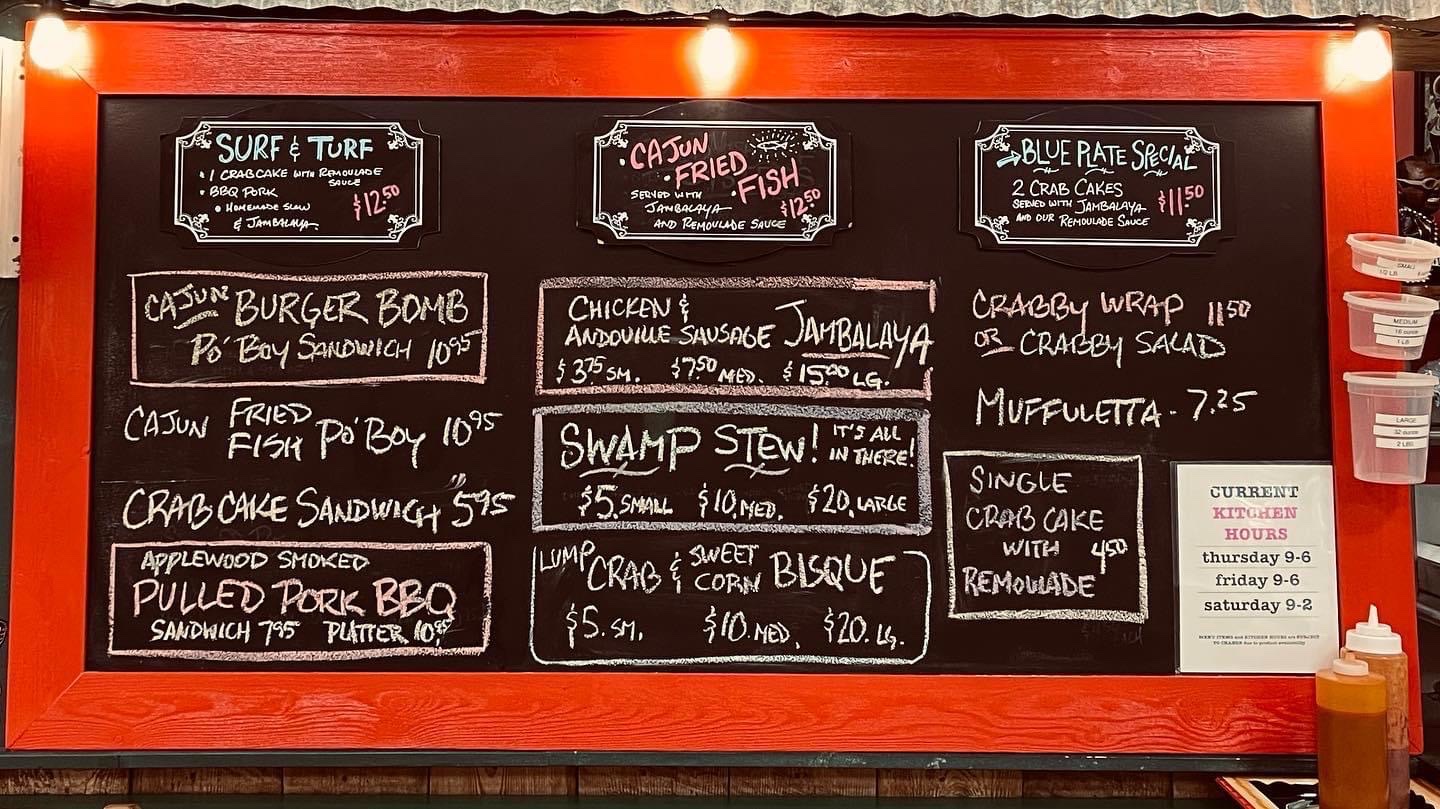 SURF & TURF
• 1 CRABCAKE WITH REMOULADE
SAUCE
• BBQ PORK
• HOMEMADE SLAW
& JAMBALAYA
$12.50
• CAJUN
• FRIED
• FISH
SERVED WITH
JAMBALAYA
AND REMOULADE SAUCE
$12.50
→BLUE PLATE SPECIAL
2 CRAB CAKES
SERVED WITH JAMBALAYA
AND OUR REMOULADE SAUCE
$11.50
CAJUN BURGER BOMB
PO'BOY SANDWICH 10.95
CAJUN FRIED FISH PO'BOY 10.95
CRAB CAKE SANDWICH 5.95
APPLEWOOD SMOKED
PULLED PORK BBQ
SANDWICH 7.95 PLATTER 10.95
CHICKEN &
ANDOUILLE SAUSAGE JAMBALAYA
$3.75 SM. $7.50 MED. $15.00 LG.
SWAMP STEW! IT'S ALL IN THERE!
$5. SMALL $10. MED. $20. LARGE
LUMP CRAB & SWEET CORN BISQUE
$5. SM. $10. MED. $20. LG.
CRABBY WRAP 11.50
OR CRABBY SALAD
MUFFULETTA - 7.25
SINGLE
CRAB CAKE
WITH 4.50
REMOULADE
CURRENT
KITCHEN
HOURS
thursday 9-6
friday 9-6
saturday 9-2
MENU ITEMS and KITCHEN HOURS are SUBJECT
TO CHANGE due to product availability
SMALL
1/2 LB
MEDIUM
16 ounce
1 LB
LARGE
32 ounce
2 LBS